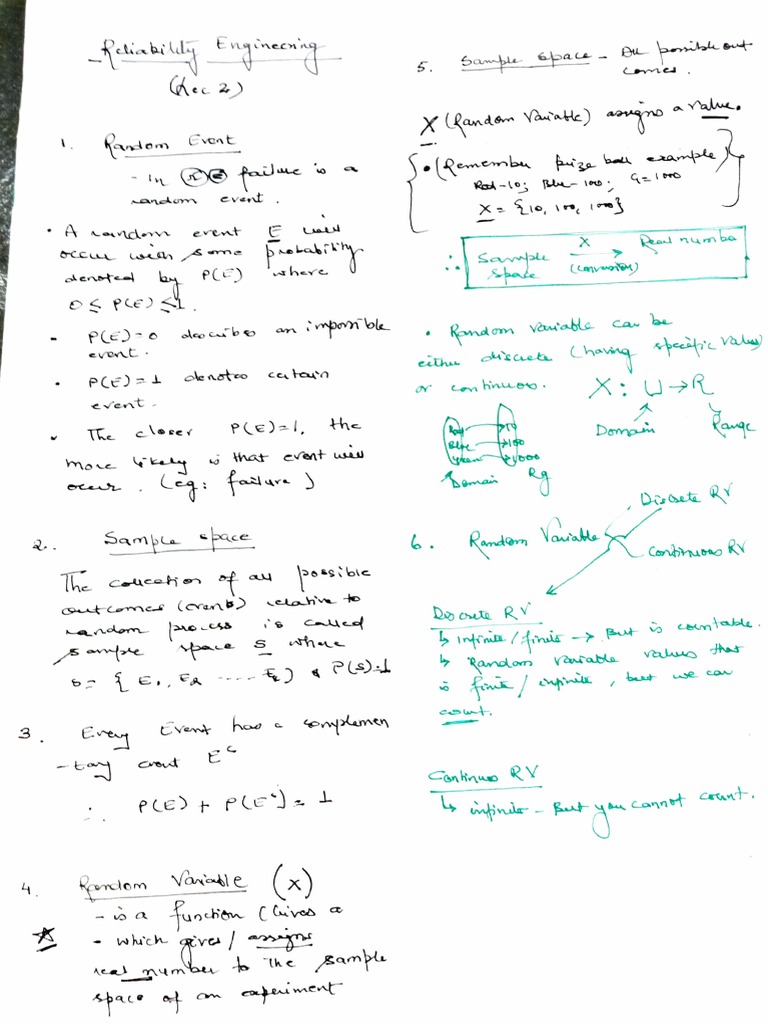 Reliability Engineering
(Lec 2)
1. Random Event
- In failure is a
random event.
• A random event E will
occur with some probability
denoted by P(E) where
0 ≤ P(E) ≤ 1.
- P(E)=0 describes an impossible
event.
• P(E)=1 denotes certain
event.
The closer P(E)=1, the
more likely is that event will
occur. (eg: failure)
2. Sample space
The collection of all possible
outcomes (events) relative to
random process is called
sample space S where
s = { E1, E2 ..... } & P(S)=1
3. Every Event has a complemen
-tary event E^c
∴ P(E) + P(E^c) = 1
4. Random Variable (X)
- is a function (Gives a
- which gives / assigns
real number to the sample
space of an experiment
5. Sample space - All possible out
comes.
X (Random Variable) assigns a value.
• (Remember prize ball example)
Red-10; Blue-100; G=1000
X = {10, 100, 1000}
∴ Sample space X → Real number
(conversion)
• Random variable can be
either discrete (having specific value)
or continuous. X: U → R
Domain Range
Red → 10
Blue → 100
Green → 1000
Domain Rg
6. Random Variable Discrete RV
Continuous RV
Discrete RV
↳ Infinite/finite → But is countable.
↳ Random variable values that
is finite/infinite, but we can
count.
Continuos RV
↳ infinite - But you cannot count.